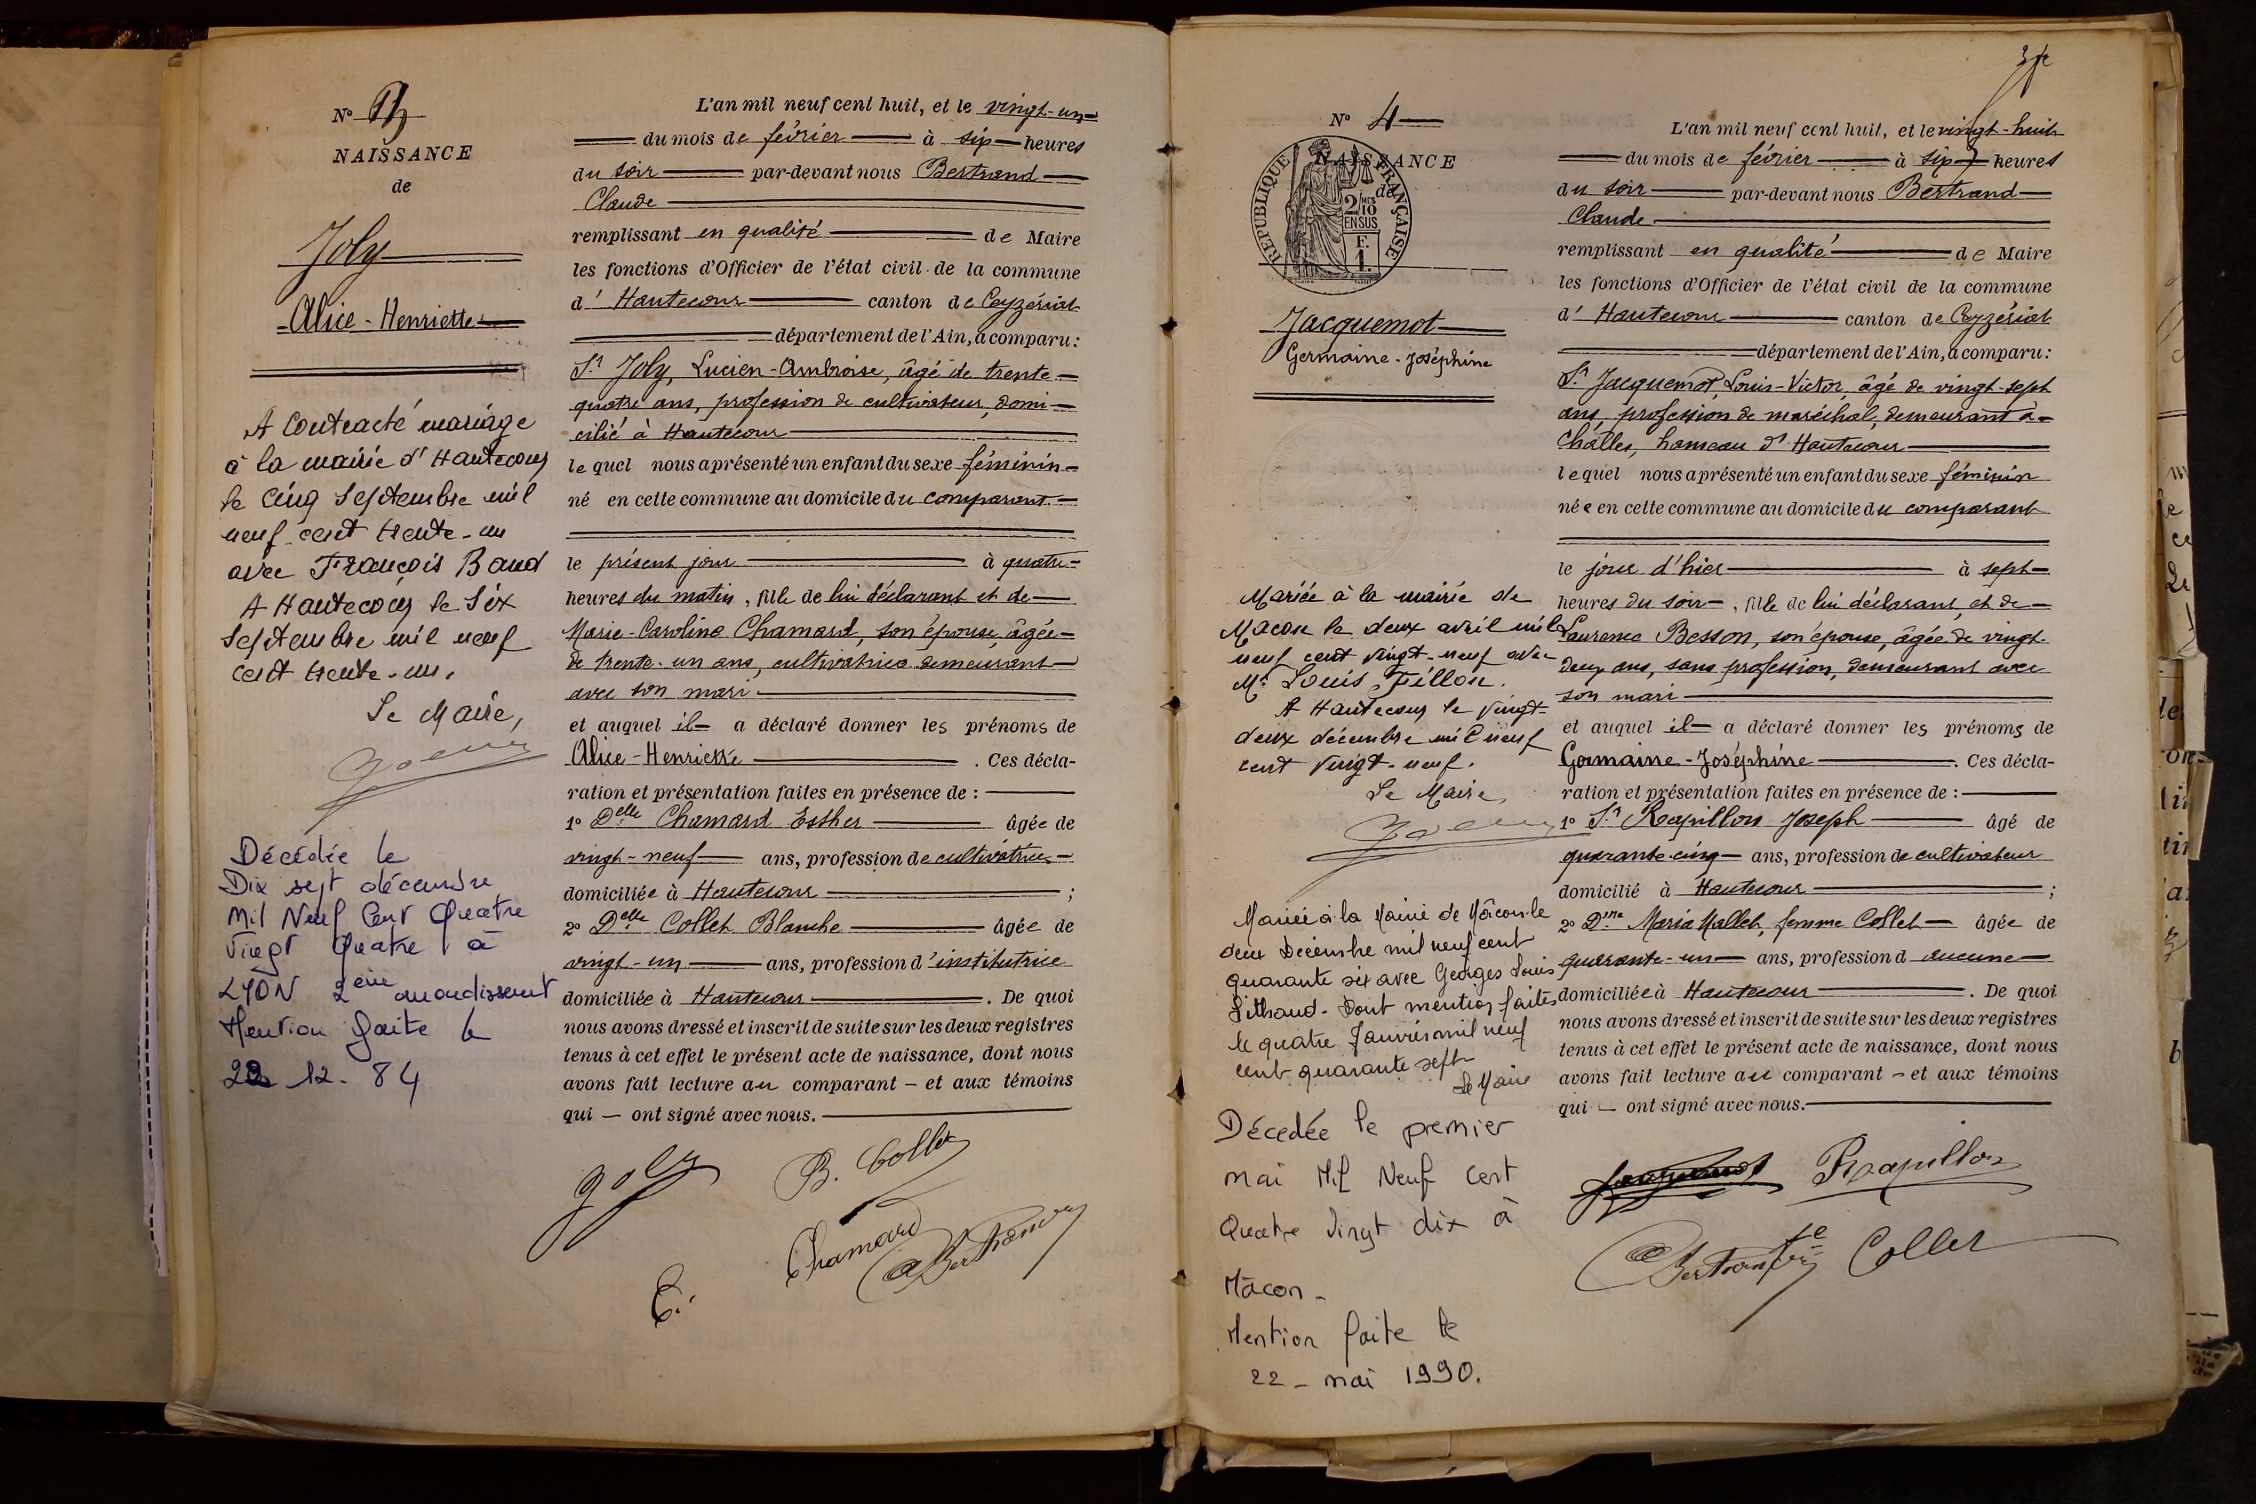 Nº
NAISSANCE
de
Joly
Alice - Henriette
A Contracté mariage
à la mairie d'Hautecour
le cinq septembre mil
neuf cent trente-un
avec François Baud
A Hautecour le six
septembre mil neuf
cent trente-un.
Le Maire,
Joly
Décédée le
Dix sept décembre
Mil Neuf Cent Quatre
Vingt Quatre à
LYON 2eme arrondissement
Mention faite le
22 12. 84
L'an mil neuf cent huit, et le vingt-un
du mois de février à six heures
du soir par-devant nous Bertrand
Claude
remplissant en qualité de Maire
les fonctions d'Officier de l'état civil de la commune
d' Hautecour canton de Ceyzériat
département de l'Ain, a comparu :
Sr Joly, Lucien-Ambroise, âgé de trente
quatre ans, profession de cultivateur, domi-
cilié à Hautecour
lequel nous a présenté un enfant du sexe féminin
né en cette commune au domicile du comparant
le présent jour à quatre
heures du matin, fille de lui déclarant et de
Marie-Caroline Chamard, son épouse, âgée
de trente-un ans, cultivatrice demeurant
avec son mari
et auquel il a déclaré donner les prénoms de
Alice-Henriette . Ces décla-
ration et présentation faites en présence de :
1º Delle Chamard Esther âgée de
vingt-neuf ans, profession de cultivatrice
domiciliée à Hautecour ;
2º Delle Collet Blanche âgée de
vingt-un ans, profession d'institutrice
domiciliée à Hautecour . De quoi
nous avons dressé et inscrit de suite sur les deux registres
tenus à cet effet le présent acte de naissance, dont nous
avons fait lecture au comparant – et aux témoins
qui — ont signé avec nous.
Joly B. Collet
Chamard Bertrand
E.
Nº 4
NAISSANCE
de
RÉPUBLIQUE FRANÇAISE
2/10
EN SUS
F.
1.
Jacquemot
Germaine-Joséphine
Mariée à la mairie de
Macon le deux avril mil
neuf cent vingt-neuf avec
Mr Louis Fillon.
A Hautecour le vingt-
deux décembre mil neuf
cent vingt-neuf.
Le Maire,
Joly
Mariée à la Mairie de Mâcon le
deux Décembre mil neuf cent
quarante six avec Georges Louis
dont mention faite
le quatre Janvier mil neuf
cent quarante sept
Le Maire
Décédée le premier
mai Mil Neuf Cent
Quatre Vingt dix à
Mâcon -
Mention faite le
22 - mai 1990.
L'an mil neuf cent huit, et le vingt-huit
du mois de février à six heures
du soir par-devant nous Bertrand
Claude
remplissant en qualité de Maire
les fonctions d'Officier de l'état civil de la commune
d' Hautecour canton de Ceyzériat
département de l'Ain, a comparu :
Sr Jacquemot, Louis-Victor, âgé de vingt-sept
ans, profession de maréchal, demeurant à
Challes, hameau d'Hautecour
lequel nous a présenté un enfant du sexe féminin
née en cette commune au domicile du comparant
le jour d'hier à sept
heures du soir, fille de lui déclarant et de
Laurence Besson, son épouse, âgée de vingt-
deux ans, sans profession, demeurant avec
son mari
et auquel il a déclaré donner les prénoms de
Germaine-Joséphine . Ces décla-
ration et présentation faites en présence de :
1º Sr Rapillon Joseph âgé de
quarante-cinq ans, profession de cultivateur
domicilié à Hautecour ;
2º Dme Maria Mallet, femme Collet âgée de
quarante-un ans, profession d aucune
domiciliée à Hautecour . De quoi
nous avons dressé et inscrit de suite sur les deux registres
tenus à cet effet le présent acte de naissance, dont nous
avons fait lecture au comparant – et aux témoins
qui — ont signé avec nous.
Jacquemot Rapillon
Bertrand fe Collet